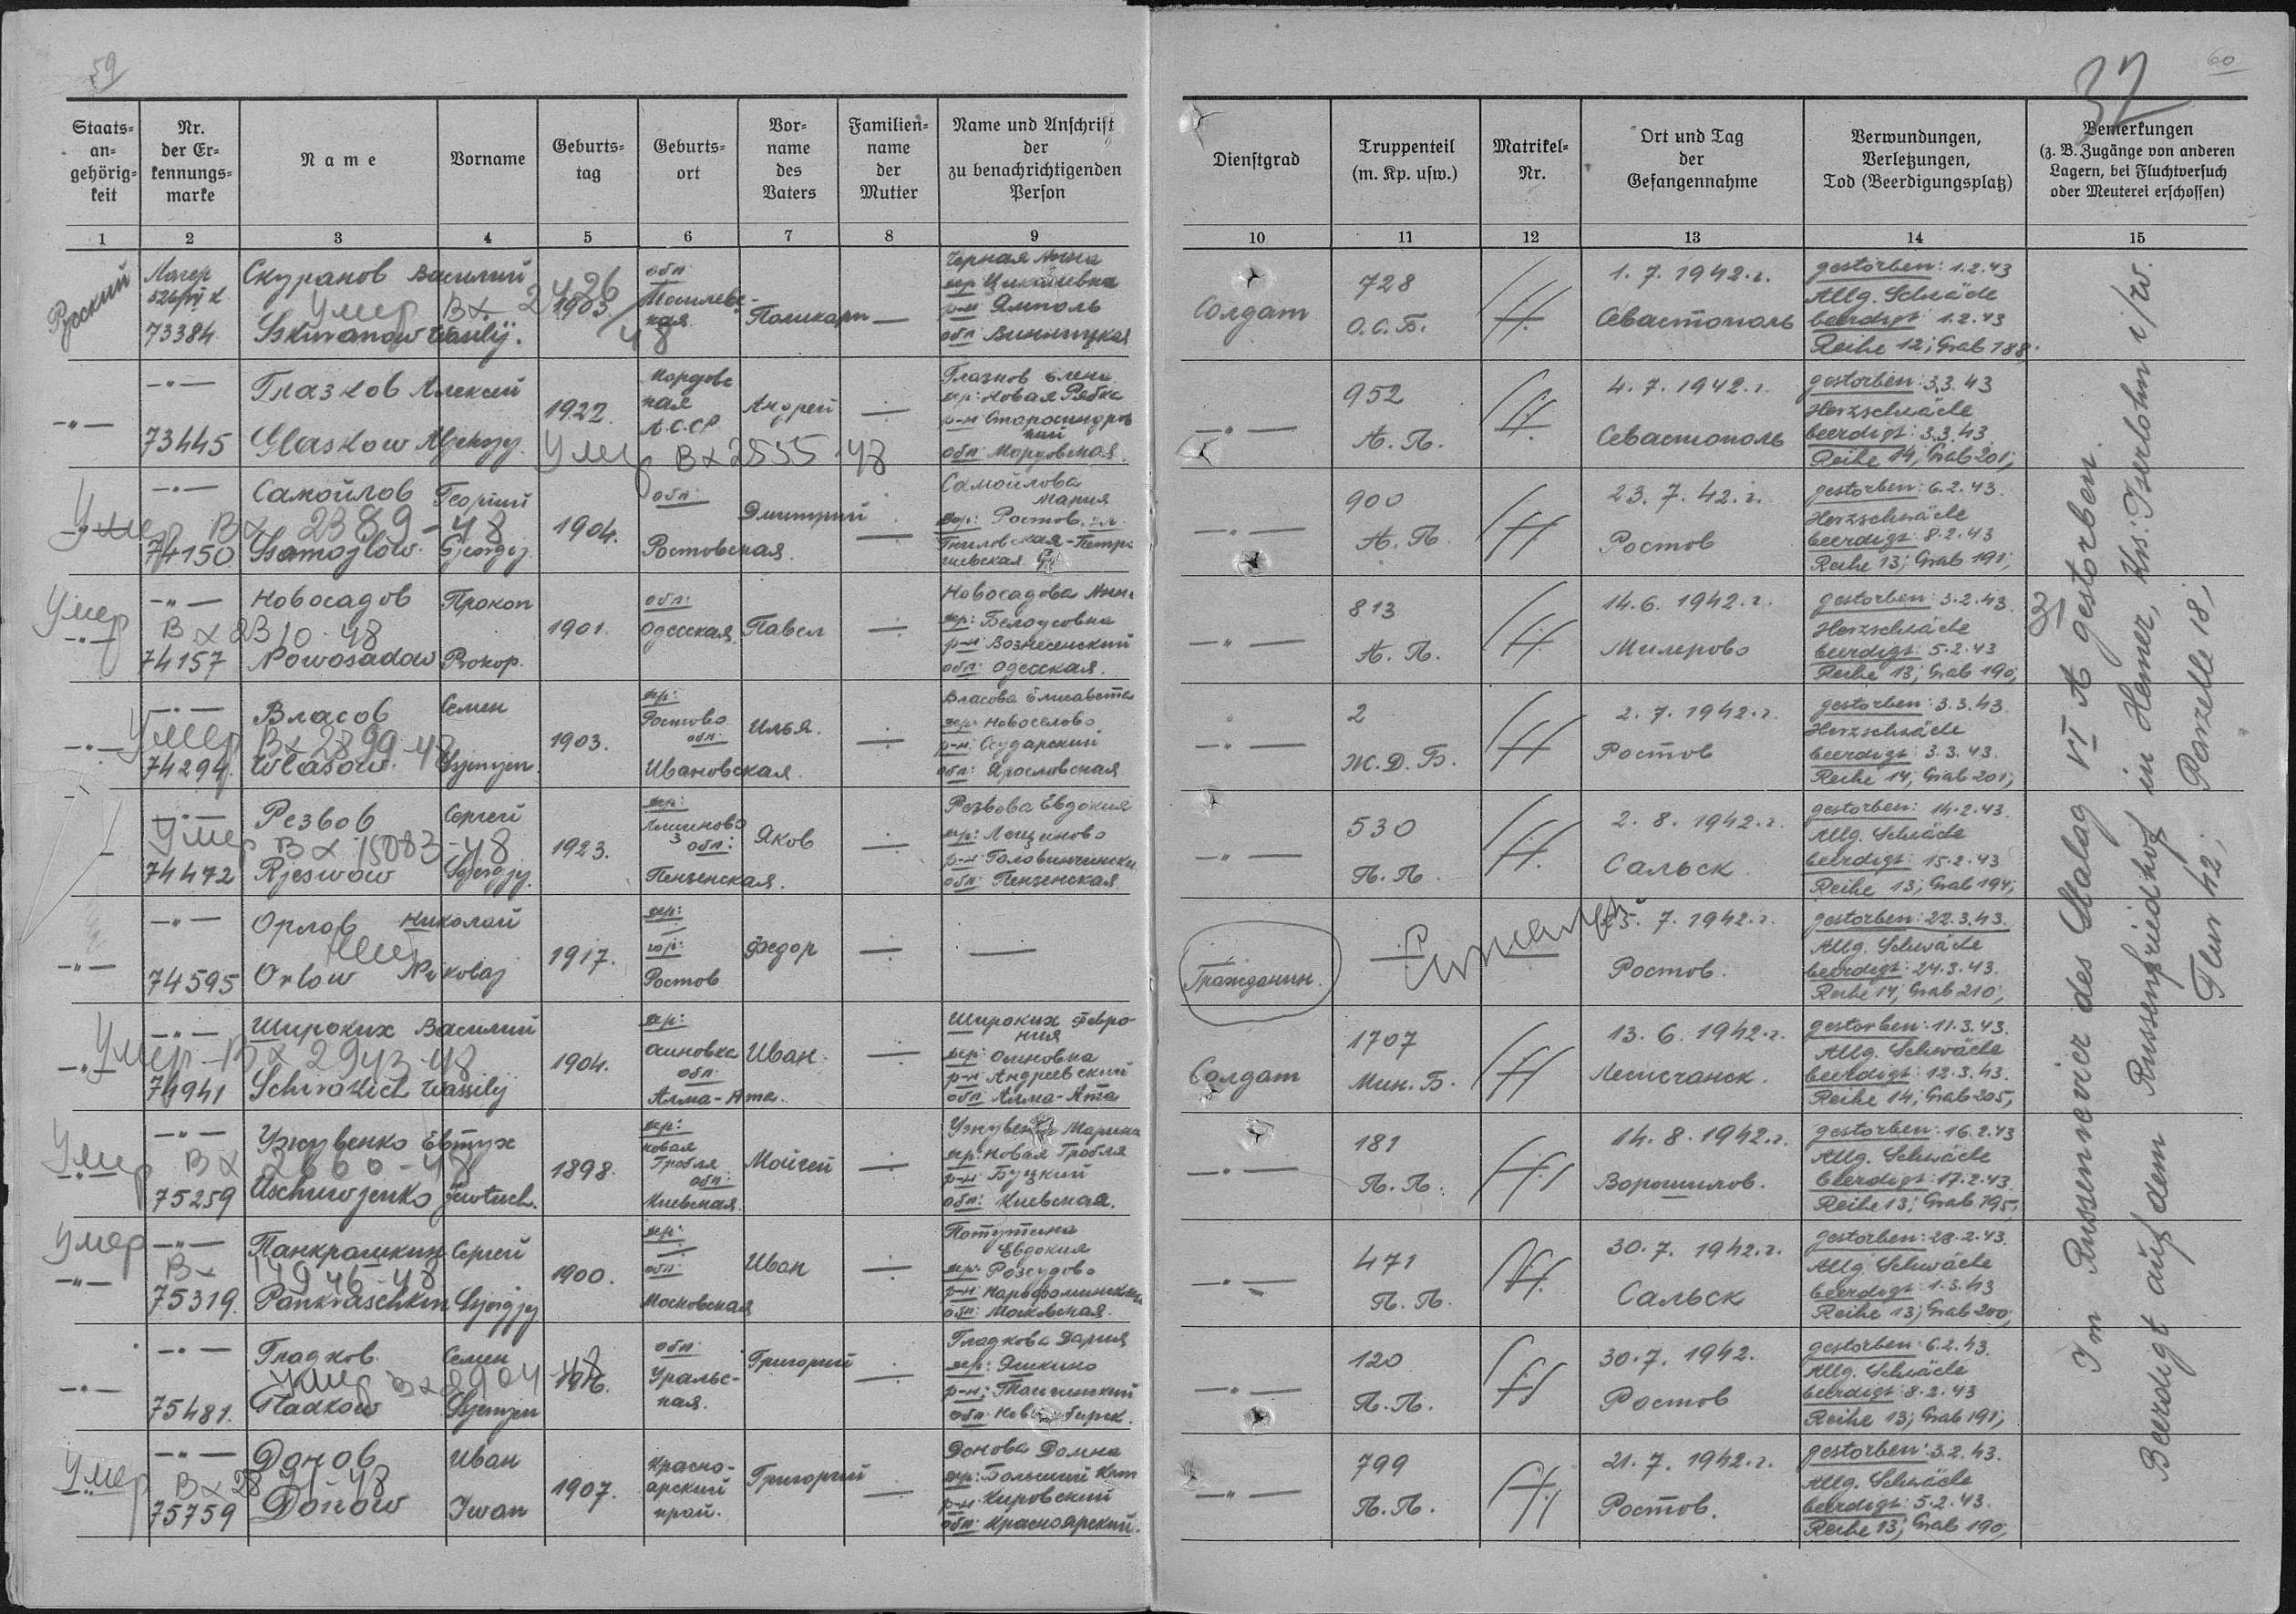 59
60
37
Staats-
an-
gehörig-
keit
Nr.
der Er-
kennungs-
marke
Name
Vorname
Geburts-
tag
Geburts-
ort
Vor-
name
des
Vaters
Familien-
name
der
Mutter
Name und Anschrift
der
zu benachrichtigenden
Person
Dienstgrad
Truppenteil
(m. Kp. usw.)
Matrikel-
Nr.
Ort und Tag
der
Gefangennahme
Verwundungen,
Verletzungen,
Tod (Beerdigungsplatz)
Bemerkungen
(z. B. Zugänge von anderen
Lagern, bei Fluchtversuch
oder Meuterei erschossen)
1 2 3 4 5 6 7 8 9 10 11 12 13 14 15
Русский
Лагер
73384
Скуранов Василий
Умер Вх. 2426
48
Sskuranow Wasilij.
1903.
обл
Поликарп —
Черная Анна
р-н Ямполь
обл: Винницкая
Солдат
728
О.С.Б.
1. 7. 1942.г.
Севастополь
gestorben: 1.2.43
Allg. Schwäche
beerdigt: 1.2.43
Reihe 12; Grab 188;
—"—
73445
Глазков Алексей
Glaskow
1922.
Умер Вх 2555-48
Мордовс
кая
АССР
Андрей —
Глазков Елена
обл: Мордовская.
—"—
952
А. П.
4. 7. 1942.г.
Севастополь
gestorben: 3.3.43
Herzschwäche
beerdigt: 3.3.43.
Reihe 14; Grab 201;
—"—
74150
Самойлов Георгий
Умер Вх 2389-48
Ssamojlow Gjeorgij
1904.
обл:
Ростовская.
Дмитрий —
Самойлова
Мария
гор: Ростов. ул.
—"—
900
А. П.
23. 7. 42.г.
Ростов
gestorben: 6.2.43.
Herzschwäche
beerdigt: 8.2.43
Reihe 13; Grab 191;
—"—
74157
Новосадов Прокоп
Умер Вх 2310-48
Nowosadow Prokop.
1901.
обл:
Одесская.
Павел —
Новосадова
р-н Вознесенский
обл: Одесская.
—"—
813
А. П.
14. 6. 1942.г.
Милерово
gestorben: 3.2.43.
Herzschwäche
beerdigt: 5.2.43
Reihe 13; Grab 190;
—"—
74294.
Власов Семен
Умер Вх 2899-48
Wlasow. Ssjemjen.
1903.
дер:
Ростово
обл:
Ивановская.
Илья. —
Власова Елисавета
дер: Новоселово
обл: Ярославская
—"—
2
Ж. Д. Б.
2. 7. 1942.г.
Ростов
gestorben: 3.3.43.
Herzschwäche
beerdigt: 3.3.43.
Reihe 14; Grab 201;
—"—
74472
Резвов Сергей
Умер Вх 15083-48
Rjeswow
1923.
дер:
обл:
Пензенская.
Яков —
Резвова Евдокия
обл: Пензенская
—"—
530
П. П.
2. 8. 1942.г.
Сальск
gestorben: 14.2.43.
Allg. Schwäche
beerdigt: 15.2.43
Reihe 13; Grab 194;
—"—
74595
Орлов Николай
Orlow Nikolaj
1917.
дер:
гор:
Ростов
Федор — —
Гражданин.
25. 7. 1942.г.
Ростов.
gestorben: 22.3.43.
Allg. Schwäche
beerdigt: 24.3.43.
Reihe 14; Grab 210;
—"—
74941
Широких Василий
Умер Вх 2943-48
Schirokich Wassilij
1904.
дер:
Осиновка
обл:
Алма-Ата.
Иван —
Широких Февро-
ния
дер: Осиновка
р-н: Андреевский
обл: Алма-Ата
Солдат
1707
Мин. Б.
13. 6. 1942.г.
Лисичанск.
gestorben: 11.3.43.
Allg. Schwäche
beerdigt: 12.3.43.
Reihe 14; Grab 205;
—"—
75259
Ужувенко Евтух
Умер Вх 2660-48
Uschuwjenko Jewtuch.
1898.
дер:
новая
Гребля
обл:
Киевская.
Мойсей —
дер: Новая Гребля
р-н: Буцкий
обл: Киевская.
—"—
181
П. П.
14. 8. 1942.г.
Ворошилов.
gestorben: 16.2.43
Allg. Schwäche
beerdigt: 17.2.43.
Reihe 13; Grab 195;
—"—
75319.
Панкрашкин Сергей
Умер Вх 14946-48
Pankraschkin
1900.
дер:
обл:
Московская
Иван —
Евдокия
обл: Московская.
—"—
471
П. П.
30. 7. 1942.г.
Сальск
gestorben: 28.2.43.
Allg. Schwäche
beerdigt: 1.3.43
Reihe 13; Grab 200;
—"—
75481.
Гладков Семен
Умер Вх 2904 48
Gladkow Ssjemjen
1916.
обл:
Уральс-
кая.
Григорий —
Гладкова Дария
дер: Яшкино
—"—
120
П. П.
30. 7. 1942.
Ростов
gestorben: 6.2.43.
Allg. Schwäche
beerdigt: 8.2.43
Reihe 13; Grab 191;
—"—
75759
Донов Иван
Умер
Donow Iwan
1907.
Красно-
арский
край.
Григорий —
Донова Домна
р-н Кировский
обл: Красноярский.
—"—
799
П. П.
21. 7. 1942.г.
Ростов.
gestorben: 3.2.43.
Allg. Schwäche
beerdigt: 5.2.43.
Reihe 13; Grab 190;
Im Russenrevier des Stalag VI A gestorben.
Beerdigt auf dem Russenfriedhof in Hemer, Krs: Iserlohn i/W.
Flur 42; Parzelle 18;